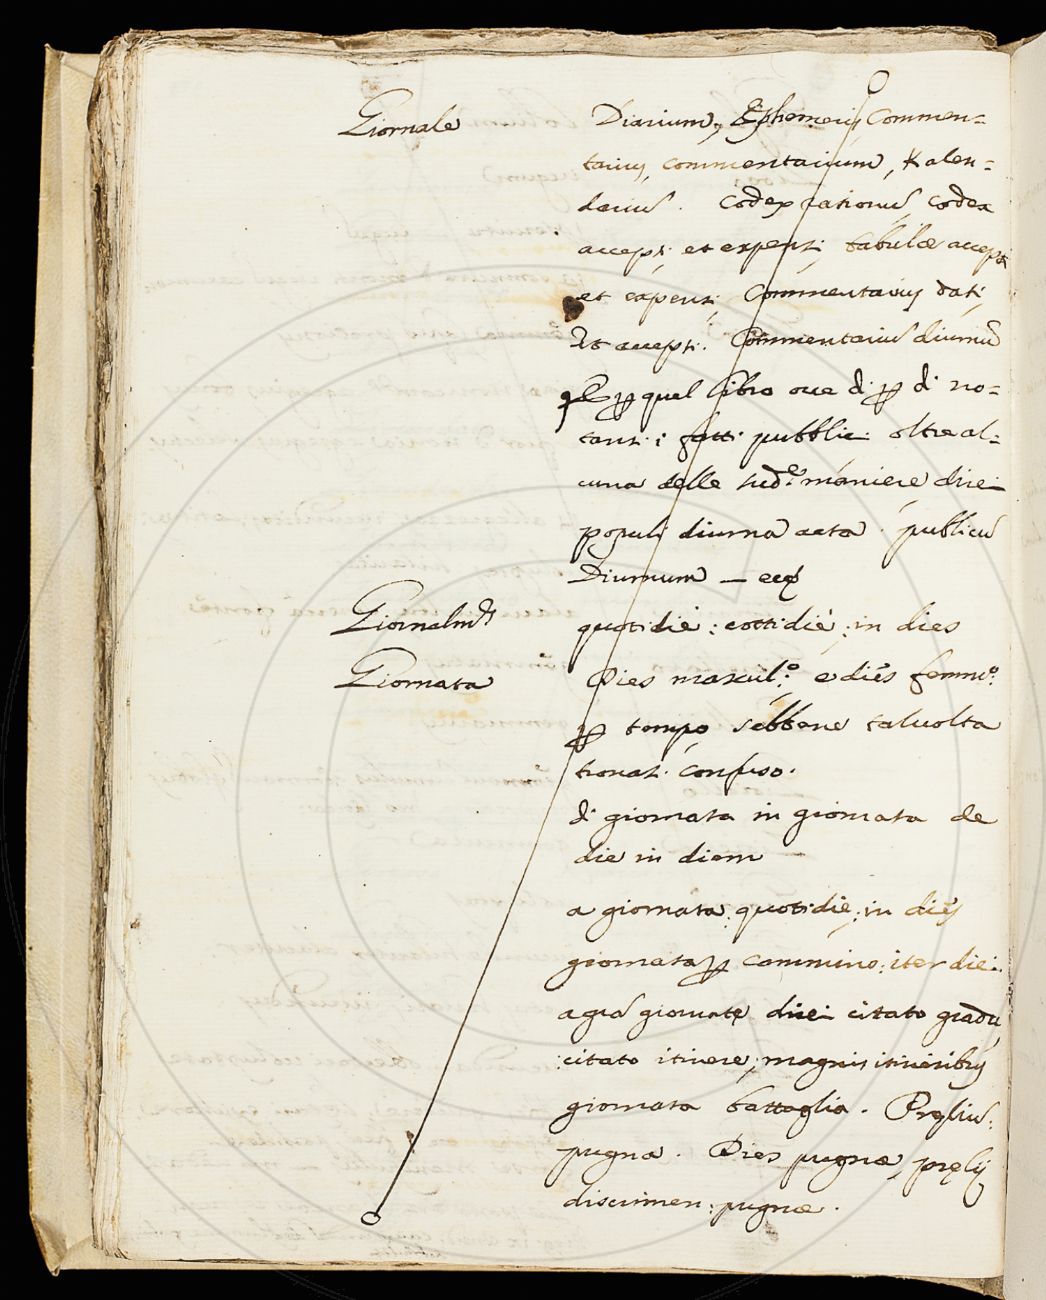 Giornale Diarium, Ephemeris, Commen=
tarius, commentarium, Kalen=
dariũ. Codex rationũ, codex
accepti, et expensi, tabulæ accepti
et expensi, Commentarius dati,
et accepti. Commentariũ diurnũ
E p quel libro ove di p di no=
tansi i fatti pubblici oltre al=
cuna delle sud.e maniere dirai
populi diurna acta. publicũ
Diurnum —
Giornalm.te quotidie: cottidie: in dies
Giornata Dies mascul.o e dies femm.o
p tempo sebbene talvolta
trovasi confuso.
di giornata in giornata de
die in diem
a giornata: quotidie: in dies
giornata p cammino: iter diei.
a grã giornate dirai citato gradu
:citato itinere; magnis itineribus
giornata battaglia. Pręliũ:
pugna. Dies pugnæ, pręlij
discrimen: pugnæ.